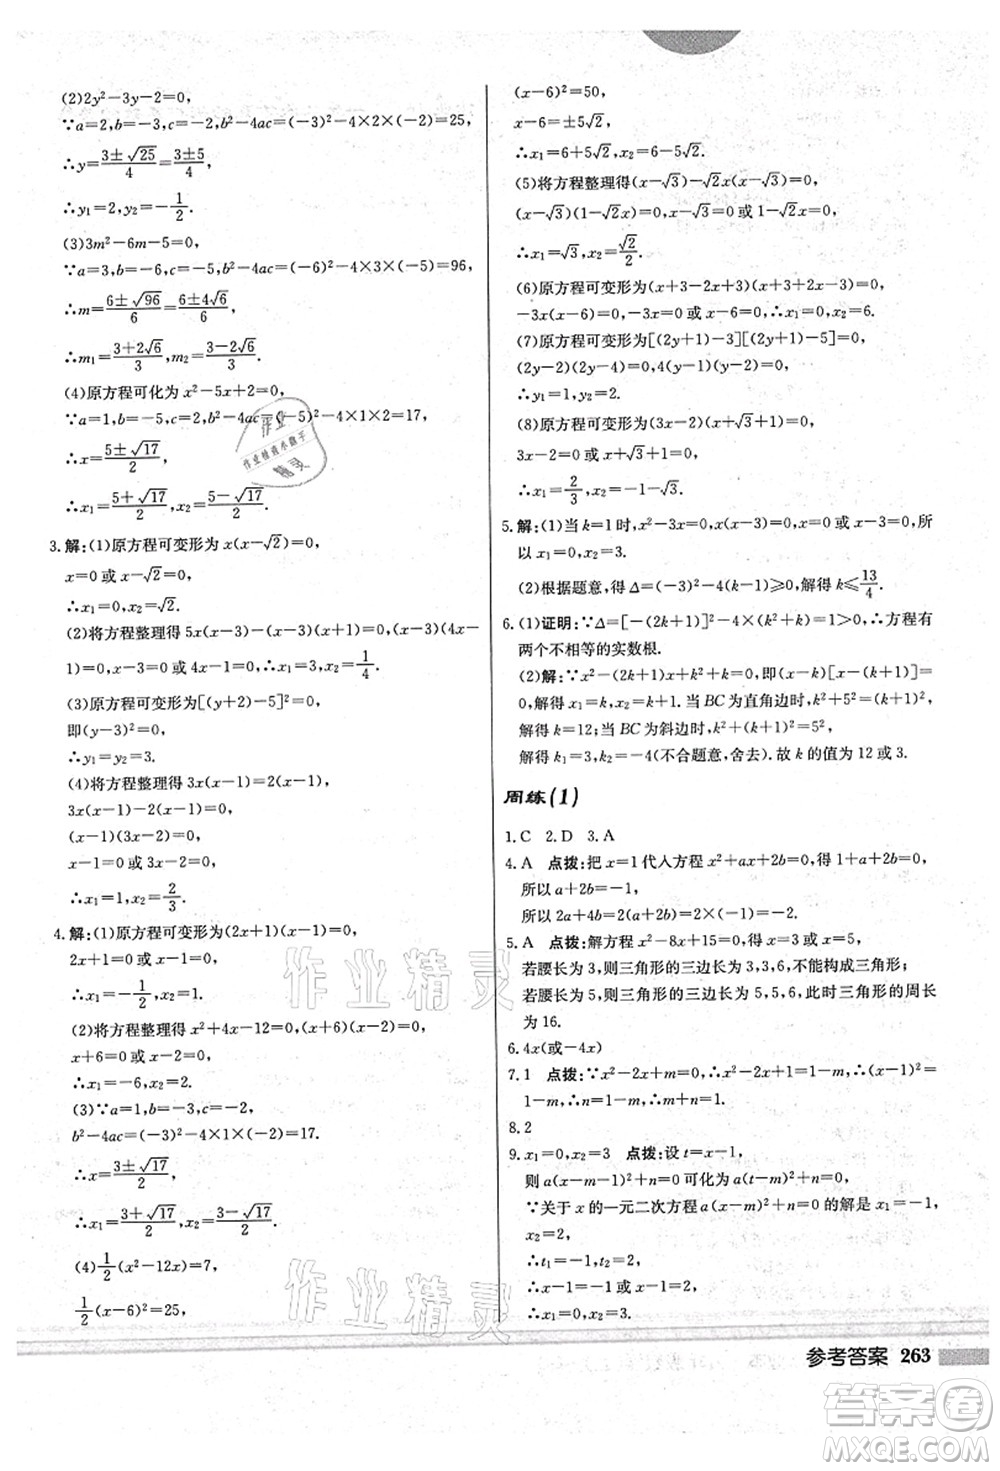 (2)2y²-3y-2=0,
∵a=2,b=-3,c=-2,b²-4ac=(-3)²-4×2×(-2)=25,
∴y=(3±√25)/4=(3±5)/4,
∴y₁=2,y₂=-1/2.
(3)3m²-6m-5=0,
∵a=3,b=-6,c=-5,b²-4ac=(-6)²-4×3×(-5)=96,
∴m=(6±√96)/6=(6±4√6)/6,
∴m₁=(3+2√6)/3,m₂=(3-2√6)/3.
(4)原方程可化为 x²-5x+2=0,
∵a=1,b=-5,c=2,b²-4ac=(-5)²-4×1×2=17,
∴x=(5±√17)/2,
∴x₁=(5+√17)/2,x₂=(5-√17)/2.
3.解:(1)原方程可变形为 x(x-√2)=0,
x=0或x-√2=0,
∴x₁=0,x₂=√2.
(2)将方程整理得 5x(x-3)-(x-3)(x+1)=0,(x-3)(4x-
1)=0,x-3=0 或 4x-1=0.∴x₁=3,x₂=1/4.
(3)原方程可变形为[(y+2)-5]²=0,
即(y-3)²=0,
∴y₁=y₂=3.
(4)将方程整理得 3x(x-1)=2(x-1),
3x(x-1)-2(x-1)=0,
(x-1)(3x-2)=0,
x-1=0 或 3x-2=0,
∴x₁=1,x₂=2/3.
4.解:(1)原方程可变形为(2x+1)(x-1)=0,
2x+1=0 或 x-1=0,
∴x₁=-1/2,x₂=1.
(2)将方程整理得 x²+4x-12=0,(x+6)(x-2)=0,
x+6=0 或 x-2=0,
∴x₁=-6,x₂=2.
(3)∵a=1,b=-3,c=-2,
b²-4ac=(-3)²-4×1×(-2)=17.
∴x=(3±√17)/2,
∴x₁=(3+√17)/2,x₂=(3-√17)/2.
(4)1/2(x-6)²=7+18,
1/2(x-6)²=25,
(x-6)²=50,
x-6=±5√2,
∴x₁=6+5√2,x₂=6-5√2.
(5)将方程整理得(x-√3)-√2x(x-√3)=0,
(x-√3)(1-√2x)=0,x-√3=0 或 1-√2x=0,
∴x₁=√3,x₂=√2/2.
(6)原方程可变形为(x+3-2x+3)(x+3+2x-3)=0,
-3x(x-6)=0,-3x=0 或 x-6=0,∴x₁=0,x₂=6.
(7)原方程可变形为[(2y+1)-3][(2y+1)-1]=0,
(2y-2)(2y)=0,4(y-1)(y)=0,
∴y₁=1,y₂=0.
(8)原方程可变形为(3x-2)(x+√3+1)=0,
3x-2=0 或 x+√3+1=0,
∴x₁=2/3,x₂=-1-√3.
5.解:(1)当 k=1时,x²-3x=0,x(x-3)=0,x=0 或 x-3=0,所
以 x₁=0,x₂=3.
(2)根据题意,得 Δ=(-3)²-4(k-1)≥0,解得 k≤13/4.
6.(1)证明:∵Δ=[-(2k+1)]²-4(k²+k)=1>0,∴方程有
两个不相等的实数根.
(2)解:∵x²-(2k+1)x+k²+k=0,即(x-k)[x-(k+1)]=
0,解得 x₁=k,x₂=k+1.当 BC为直角边时,k²+5²=(k+1)²,
解得 k=12;当 BC为斜边时,k²+(k+1)²=5²,
解得 k₁=3,k₂=-4(不合题意,舍去).故 k 的值为 12 或 3.
周练(1)
1.C 2.D 3.A
4.A 点拨:把 x=1代人方程 x²+ax+2b=0,得 1+a+2b=0,
所以 a+2b=-1,
所以 2a+4b=2(a+2b)=2×(-1)=-2.
5.A 点拨:解方程 x²-8x+15=0,得 x=3 或 x=5,
若腰长为 3,则三角形的三边长为 3,3,6,不能构成三角形;
若腰长为 5,则三角形的三边长为 5,5,6,此时三角形的周长
为 16.
6.4x(或-4x)
7.1 点拨:∵x²-2x+m=0,∴x²-2x=-m,∴x²-2x+1=
1-m,∴(x-1)²=1-m.
8.2
9.x₁=0,x₂=3 点拨:设 t=x-1,
则 a(x-m-1)²+n=0 可化为 a(t-m)²+n=0,
∵关于 x 的一元二次方程 a(x-m)²+n=0 的解是 x₁=-1,
x₂=2,
∴t₁=-1,t₂=2,
∴x-1=-1 或 x-1=2,
∴x₁=0,x₂=3.
参考答案 263
作业
作业检查小助手
精灵
作业精灵
作业精灵
答案圈
MXQE.COM